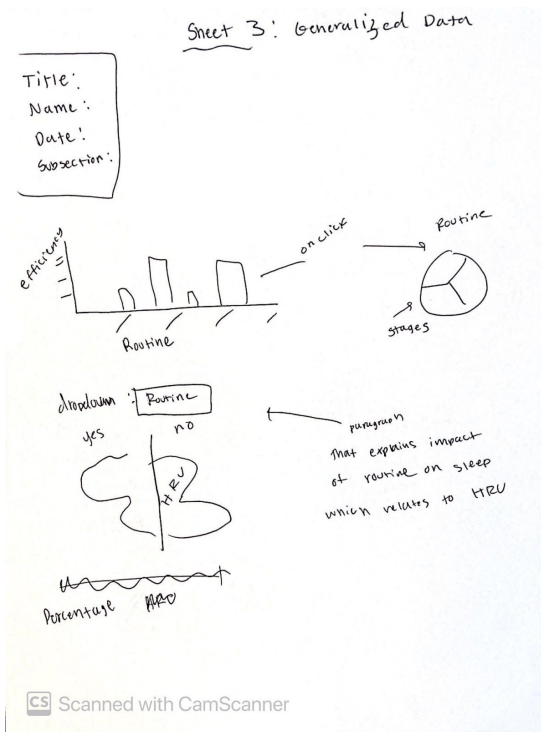 Sheet 3: Generalized Data
Title:
Name:
Date:
Subsection:
efficiency
Routine
on click
Routine
stages
dropdown: Routine
yes no
HRV
paragraph
that explains impact
of routine on sleep
which relates to HRV
Percentage
CS Scanned with CamScanner